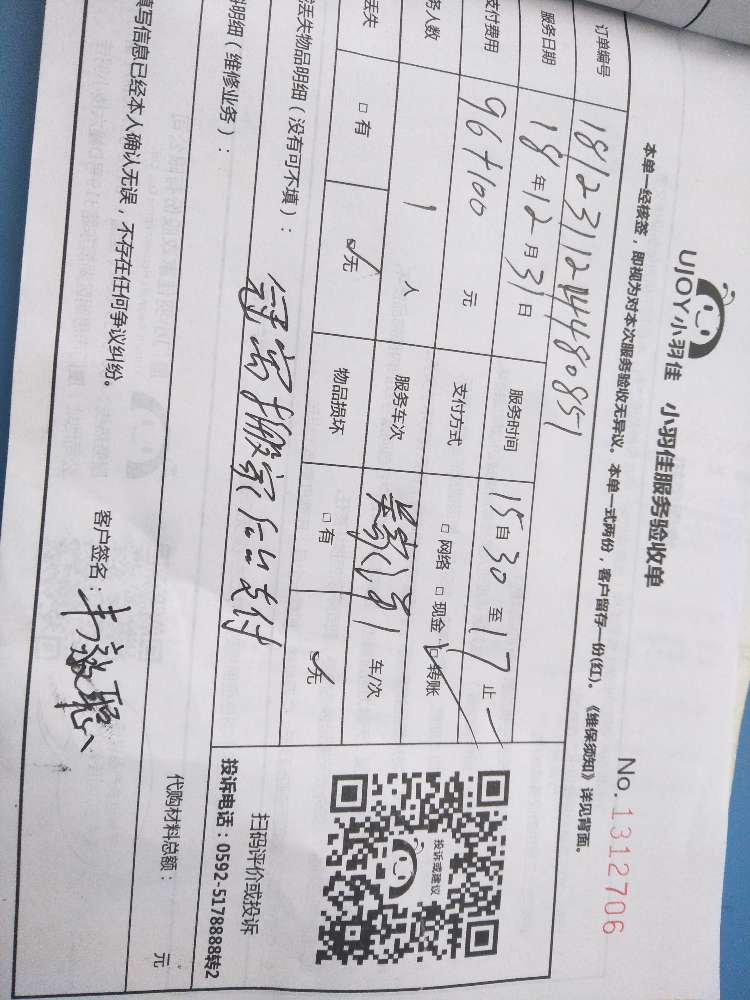 UJOY小羽佳 小羽佳服务验收单
No. 1312706
本单一经核签，即视为对本次服务验收无异议。本单一式两份，客户留存一份(红)。《维保须知》详见背面。
订单编号 181231124480851
服务日期 18年12月31日 服务时间 15自30至17止
支付费用 96+100 元 支付方式 □网络 □现金 ☑转账
务人数 1 人 服务车次 1 车/次
丢失 □有 ☑无 物品损坏 □有 ☑无
丢失物品明细（没有可不填）：
搬家 支付
明细（维修业务）：
代购材料总额： 元
填写信息已经本人确认无误，不存在任何争议纠纷。
客户签名：
投诉或建议
扫码评价或投诉
投诉电话：0592-5178888转2